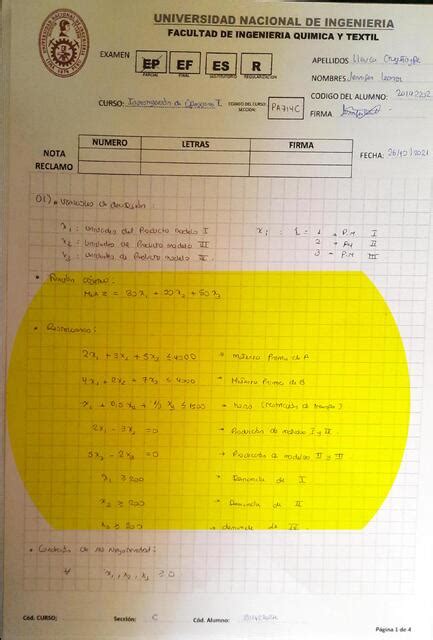 UNIVERSIDAD NACIONAL DE INGENIERIA
FACULTAD DE INGENIERIA QUIMICA Y TEXTIL
EXAMEN EP EF ES R
PARCIAL FINAL SUSTITUTORIO REGULARIZACION
APELLIDOS
NOMBRES: Jennifer Leonor
CODIGO DEL ALUMNO:
CURSO: Investigación de Operaciones I CODIGO DEL CURSO: SECCIÓN: PA714C
FIRMA
NUMERO LETRAS FIRMA
NOTA
RECLAMO
FECHA: 26/10/2021
01) • Variables de decisión:
x₁: unidades del Producto modelo I
x₂: unidades de Producto modelo II
x₃: unidades de Producto modelo III
xᵢ: i = 1 → P.M I
2 → P.M II
3 → P.M III
• Función objetivo:
Max Z = 30x₁ + 20x₂ + 50x₃
• Restricciones:
2x₁ + 3x₂ + 5x₃ ≤ 4000 → Materia Prima de A
4x₁ + 2x₂ + 7x₃ ≤ 6000 → Materia Prima de B
x₁ + 0,5x₂ + 1/3 x₃ ≤ 1500 →
2x₁ - 3x₂ = 0 → Producción de modelos I y II
5x₂ - 2x₃ = 0 → Producción de modelos II y III
x₁ ≥ 200 → Demanda de I
x₂ ≥ 200 → Demanda de II
x₃ ≥ → demanda de III
• Condición de No Negatividad:
∀ x₁, x₂, x₃ ≥ 0
Cód. CURSO: Sección: C Cód. Alumno:
Página 1 de 4